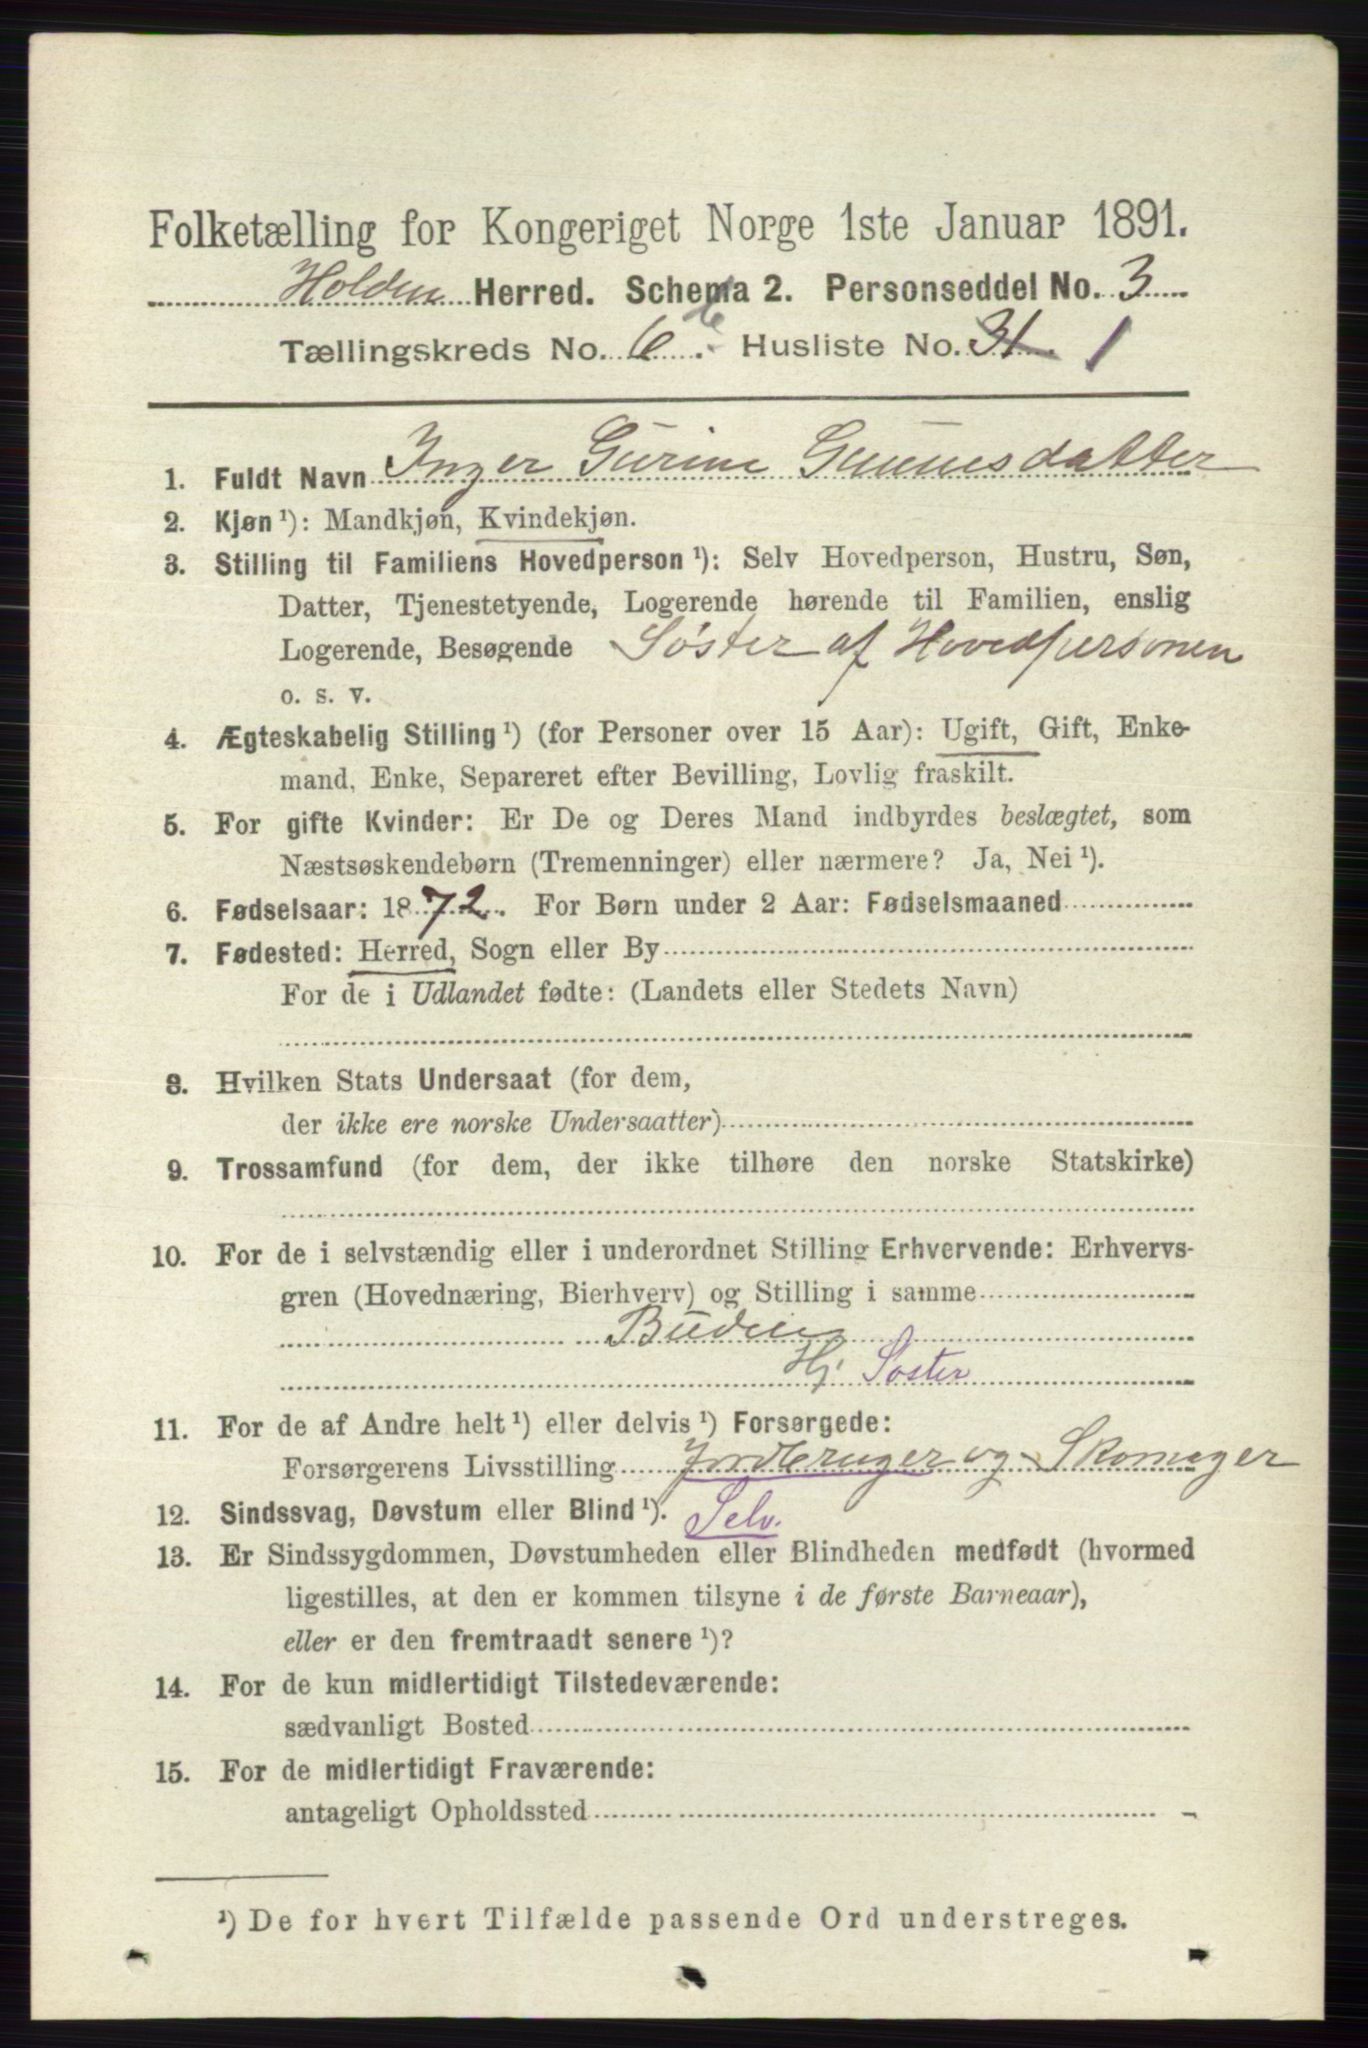 Folketælling for Kongeriget Norge 1ste Januar 1891.
Holden Herred. Schema 2. Personseddel No. 3
Tællingskreds No. 6 b. Husliste No. 31 1
1. Fuldt Navn Inger Gurine Gunnesdatter
2. Kjøn ¹): Mandkjøn, Kvindekjøn.
3. Stilling til Familiens Hovedperson ¹): Selv Hovedperson, Hustru, Søn,
Datter, Tjenestetyende, Logerende hørende til Familien, enslig
Logerende, Besøgende Søster af Hovedpersonen
o. s. v.
4. Ægteskabelig Stilling ¹) (for Personer over 15 Aar): Ugift, Gift, Enke-
mand, Enke, Separeret efter Bevilling, Lovlig fraskilt.
5. For gifte Kvinder: Er De og Deres Mand indbyrdes beslægtet, som
Næstsøskendebørn (Tremenninger) eller nærmere? Ja, Nei ¹).
6. Fødselsaar: 1872. For Børn under 2 Aar: Fødselsmaaned
7. Fødested: Herred, Sogn eller By
For de i Udlandet fødte: (Landets eller Stedets Navn)
8. Hvilken Stats Undersaat (for dem,
der ikke ere norske Undersaatter)
9. Trossamfund (for dem, der ikke tilhøre den norske Statskirke)
10. For de i selvstændig eller i underordnet Stilling Erhvervende: Erhvervs-
gren (Hovednæring, Bierhverv) og Stilling i samme
Budeie
Hj. Søster
11. For de af Andre helt ¹) eller delvis ¹) Forsørgede:
Forsørgerens Livsstilling Jordbruger og Skomager
12. Sindssvag, Døvstum eller Blind ¹). Selv.
13. Er Sindssygdommen, Døvstumheden eller Blindheden medfødt (hvormed
ligestilles, at den er kommen tilsyne i de første Barneaar),
eller er den fremtraadt senere ¹)?
14. For de kun midlertidigt Tilstedeværende:
sædvanligt Bosted
15. For de midlertidigt Fraværende:
antageligt Opholdssted
¹) De for hvert Tilfælde passende Ord understreges.